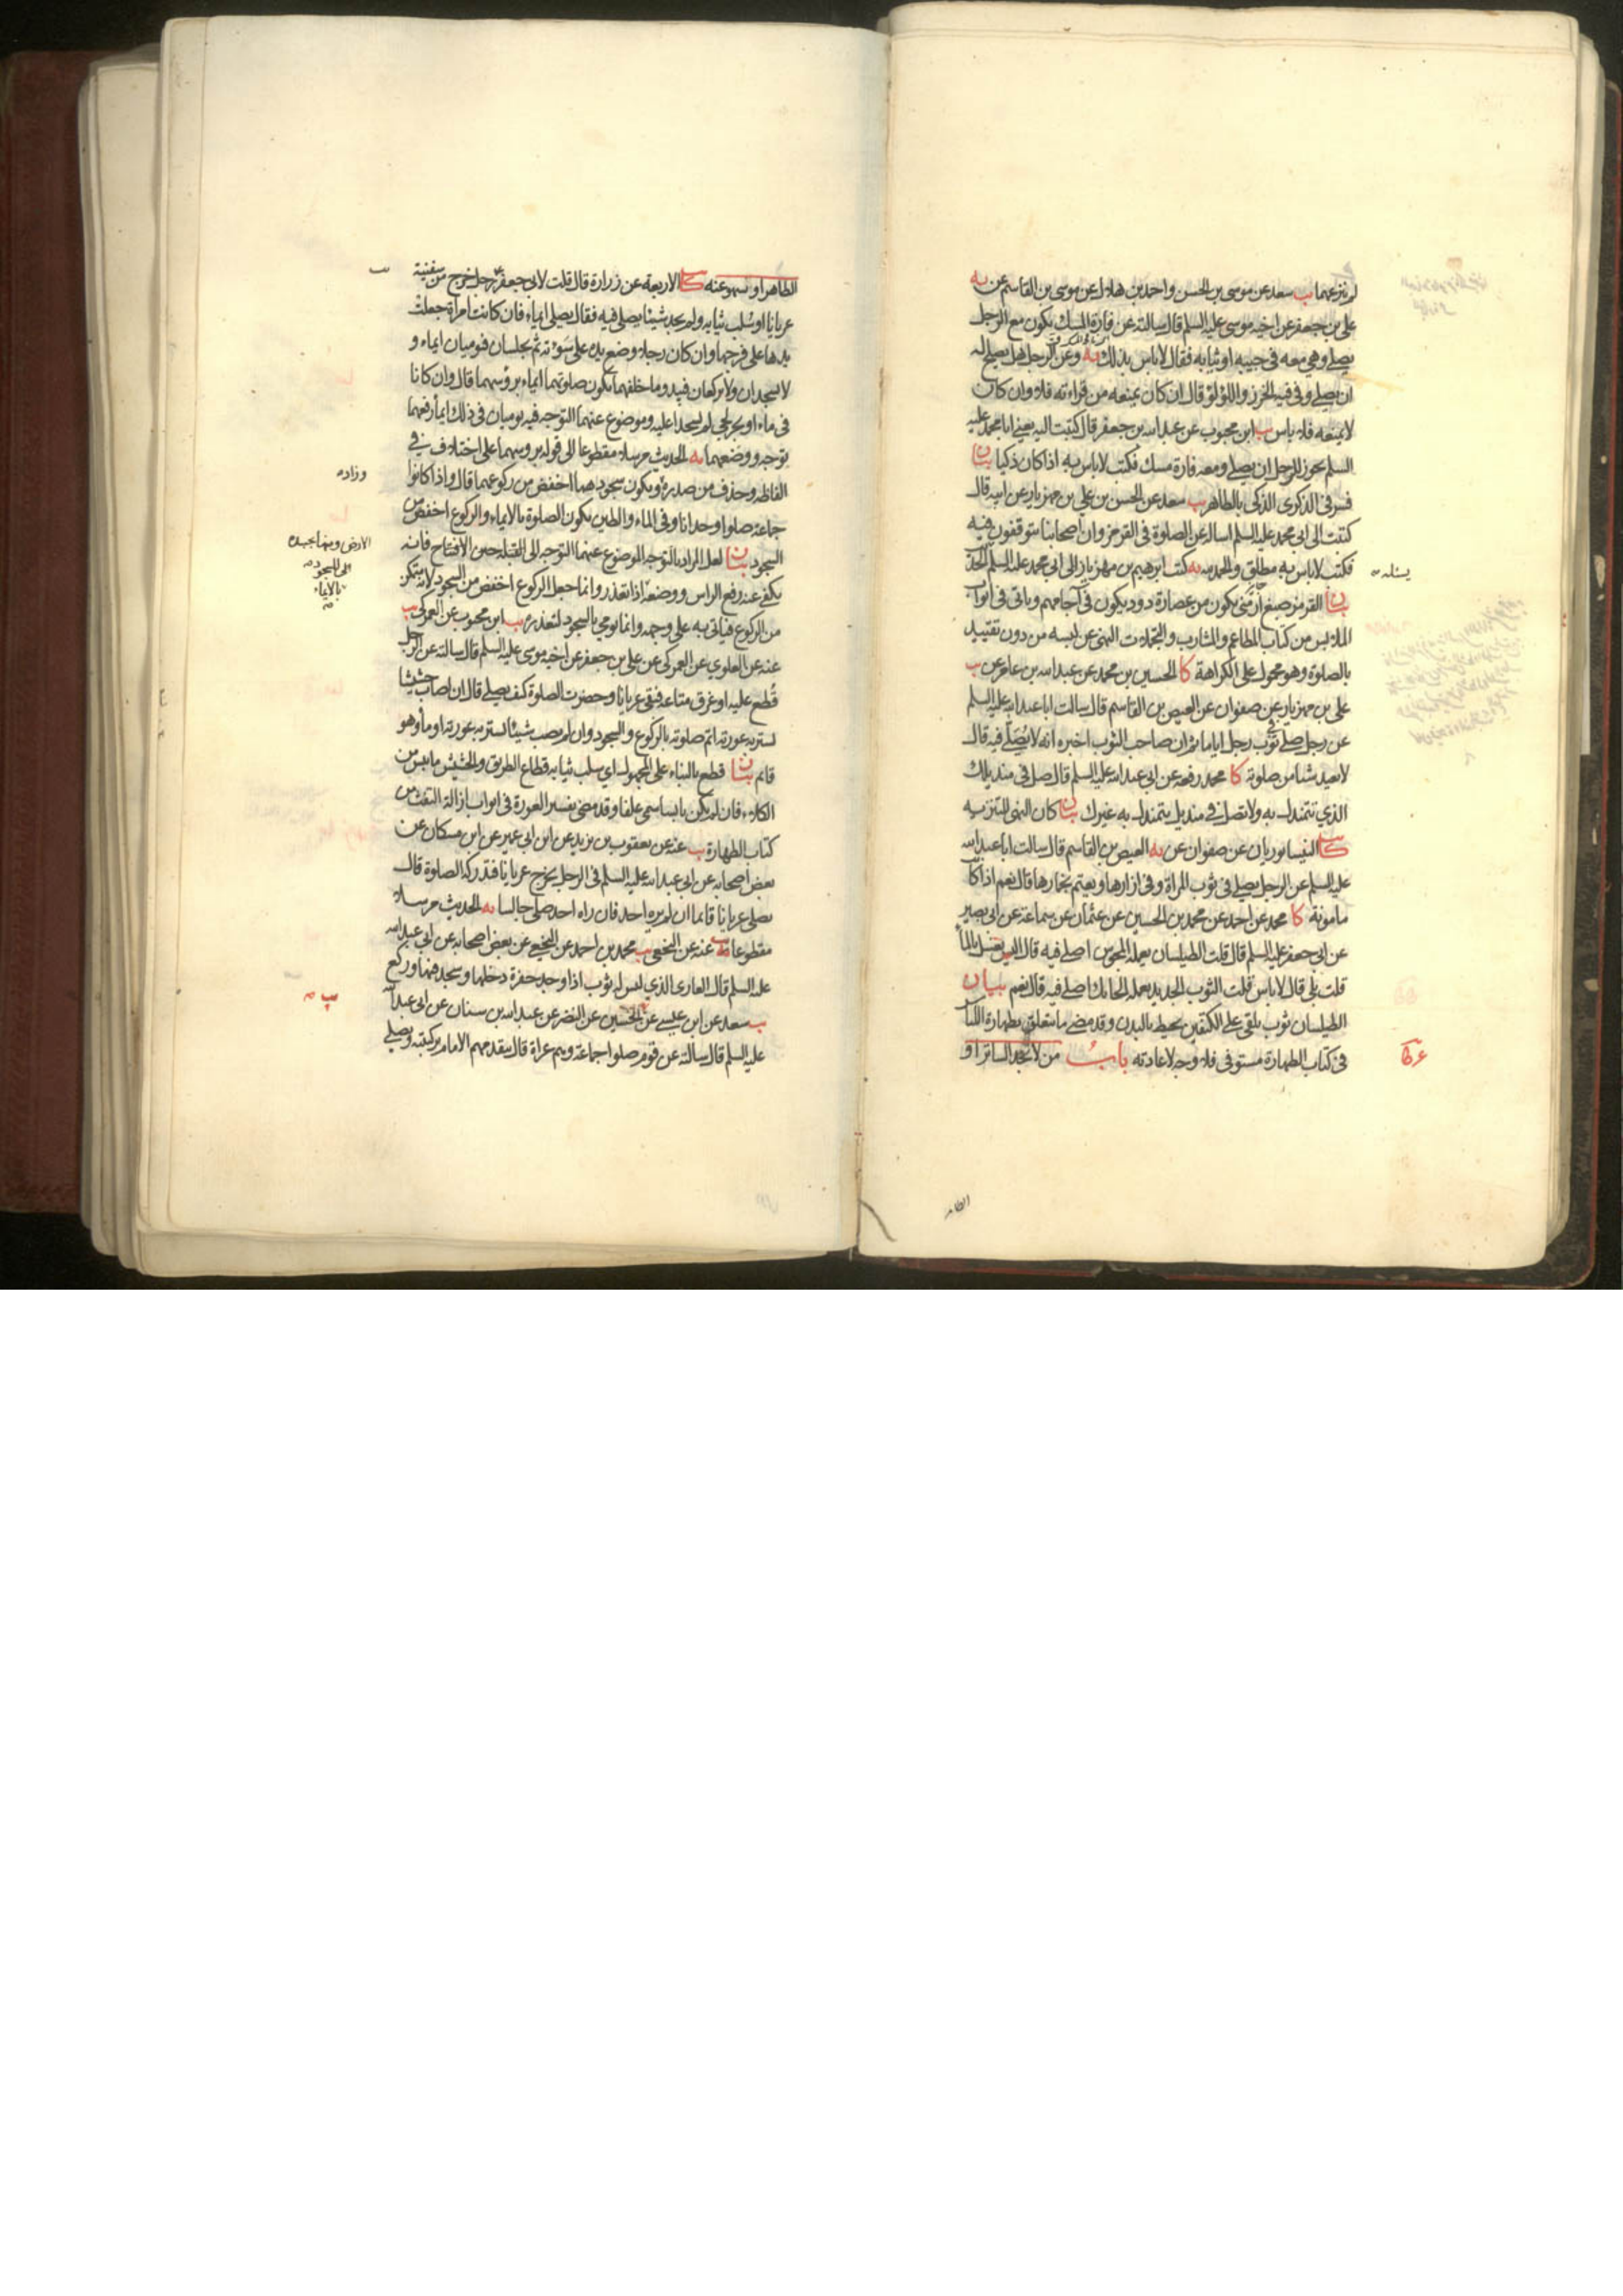 لم تنزعهما يب سعد عن موسى بن الحسن واحمد بن هلال عن موسى بن القاسم عن يه
على بن جعفر عن اخيه موسى عليه السلم قال سالته عن فارة المسك تكون مع الرجل
يصلي وهي معه في جيبه او ثيابه فقال لا باس بذلك يه وعن الرجل هل يصلح له
ان يصلي وفي فيه الخرز واللؤلؤ قال ان كان يمنعه من قراءته فلا وان كان
لا يمنعه فلا باس يب ابن محبوب عن عبد الله بن جعفر قال كتبت اليه يعني ابا محمد عليه
السلم يجوز للرجل ان يصلي ومعه فارة مسك فكتب لا باس به اذا كان ذكيا بيان
فسر في الذكرى الذكي بالطاهر يب سعد عن الحسن بن علي بن مهزيار عن ابيه قال
كتبت الى ابي محمد عليه السلم اساله عن الصلوة في القرمز وان اصحابنا يتوقفون فيه
فكتب لا باس به مطلق والحمد لله يه كتب ابرهيم بن مهزيار الى ابي محمد عليه السلم الحديث
يسئله
بيان القرمز صبغ ارمني يكون من عصارة دود يكون في آجامهم وياتي في ابواب
الملابس من كتاب المطاعم والمشارب والتجملات النهي عن لبسه من دون تقييد
بالصلوة وهو محمول على الكراهة كا الحسين بن محمد عن عبد الله بن عامر عن يب
على بن مهزيار عن صفوان عن العيص بن القاسم قال سالت ابا عبد الله عليه السلم
عن رجل صلى في ثوب رجل اياما ثم ان صاحب الثوب اخبره انه لا يصلي فيه قال
لا يعيد شيئا من صلوته كا محمد رفعه عن ابي عبد الله عليه السلم قال صل في منديلك
الذي تتمندل به ولا تصل في منديل يتمندل به غيرك بيان كان النهي للتنزيه
كا النيسابوريان عن صفوان عن يه العيص بن القاسم قال سالت ابا عبد الله
عليه السلم عن الرجل يصلي في ثوب المراة وفي ازارها ويعتم بخمارها قال نعم اذا كانت
مامونة كا محمد عن احمد عن محمد بن الحسين عن عثمان عن سماعة عن ابي بصير
عن ابي جعفر عليه السلم قال قلت الطيلسان يعمله المجوس اصلي فيه قال اليس يغسل بالماء
قلت بلى قال لا باس قلت الثوب الجديد يعمله الحائك اصلي فيه قال نعم بيان
الطيلسان ثوب يلقى على الكتفين يحيط بالبدن وقد مضى ما يتعلق بطهارة اللباس
في كتاب الطهارة مستوفى فلا وجه لاعادته باب من لا يجد الساتر او
الطاهر
الطاهر او سهو عنه كا الاربعة عن زرارة قال قلت لابي جعفر ع رجل خرج من سفينة
عريانا او سلب ثيابه ولم يجد شيئا يصلي فيه فقال يصلي ايماء فان كانت امراة جعلت
يدها على فرجها وان كان رجلا وضع يده على سوءته ثم يجلسان فيوميان ايماء و
لا يسجدان ولا يركعان فيبدو ما خلفهما تكون صلوتهما ايماء برؤسهما قال وان كانا
في ماء او بحر لجي لم يسجدا عليه وموضوع عنهما التوجه فيه يوميان في ذلك ايماء رفعهما
توجه ووضعهما يه الحديث مرسلا مقطوعا الى قوله برؤسهما على اختلاف في
الفاظه وحذف من صدره ويكون سجودهما اخفض من ركوعهما قال واذا كانوا
وزاد
جماعة صلوا وحدانا وفي الماء والطين تكون الصلوة بالايماء والركوع اخفض من
السجود بيان لعل المراد بالتوجه الموضوع عنهما التوجه الى القبلة حين الافتتاح فانه
يكفي عنه رفع الراس ووضعه اذا تعذر وانما جعل الركوع اخفض من السجود لانه يتمكن
من الركوع فياتي به على وجهه وانما يومي بالسجود لتعذره يب ابن محبوب عن العمركي يب
عنه عن العلوي عن العمركي عن علي بن جعفر عن اخيه موسى عليه السلم قال سالته عن الرجل
قطع عليه او غرق متاعه فبقي عريانا وحضرت الصلوة كيف يصلي قال ان اصاب حشيشا
يستر به عورته اتم صلوته بالركوع والسجود وان لم يصب شيئا يستر به عورته اومأ وهو
قائم بيان قطع بالبناء على المجهول اي سلب ثيابه قطاع الطريق والحشيش ما يبس من
الكلاء فان لم يكن يابسا سمي علفا وقد مضى تفسير العورة في ابواب ازالة التفث من
كتاب الطهارة يب عنه عن يعقوب بن يزيد عن ابن ابي عمير عن ابن مسكان عن
بعض اصحابه عن ابي عبد الله عليه السلم في الرجل يخرج عريانا فتدركه الصلوة قال
يصلي عريانا قائما ان لم يره احد فان راه احد صلى جالسا يه الحديث مرسلا
مقطوعا يب عنه عن النخعي يب محمد بن احمد عن النخعي عن بعض اصحابه عن ابي عبد الله
عليه السلم قال العاري الذي ليس له ثوب اذا وجد حفرة دخلها وسجد فيها وركع
يب سعد عن ابن عيسى عن الحسين عن النضر عن عبد الله بن سنان عن ابي عبد الله
عليه السلم قال سالته عن قوم صلوا جماعة وهم عراة قال يتقدمهم الامام بركبتيه ويصلي